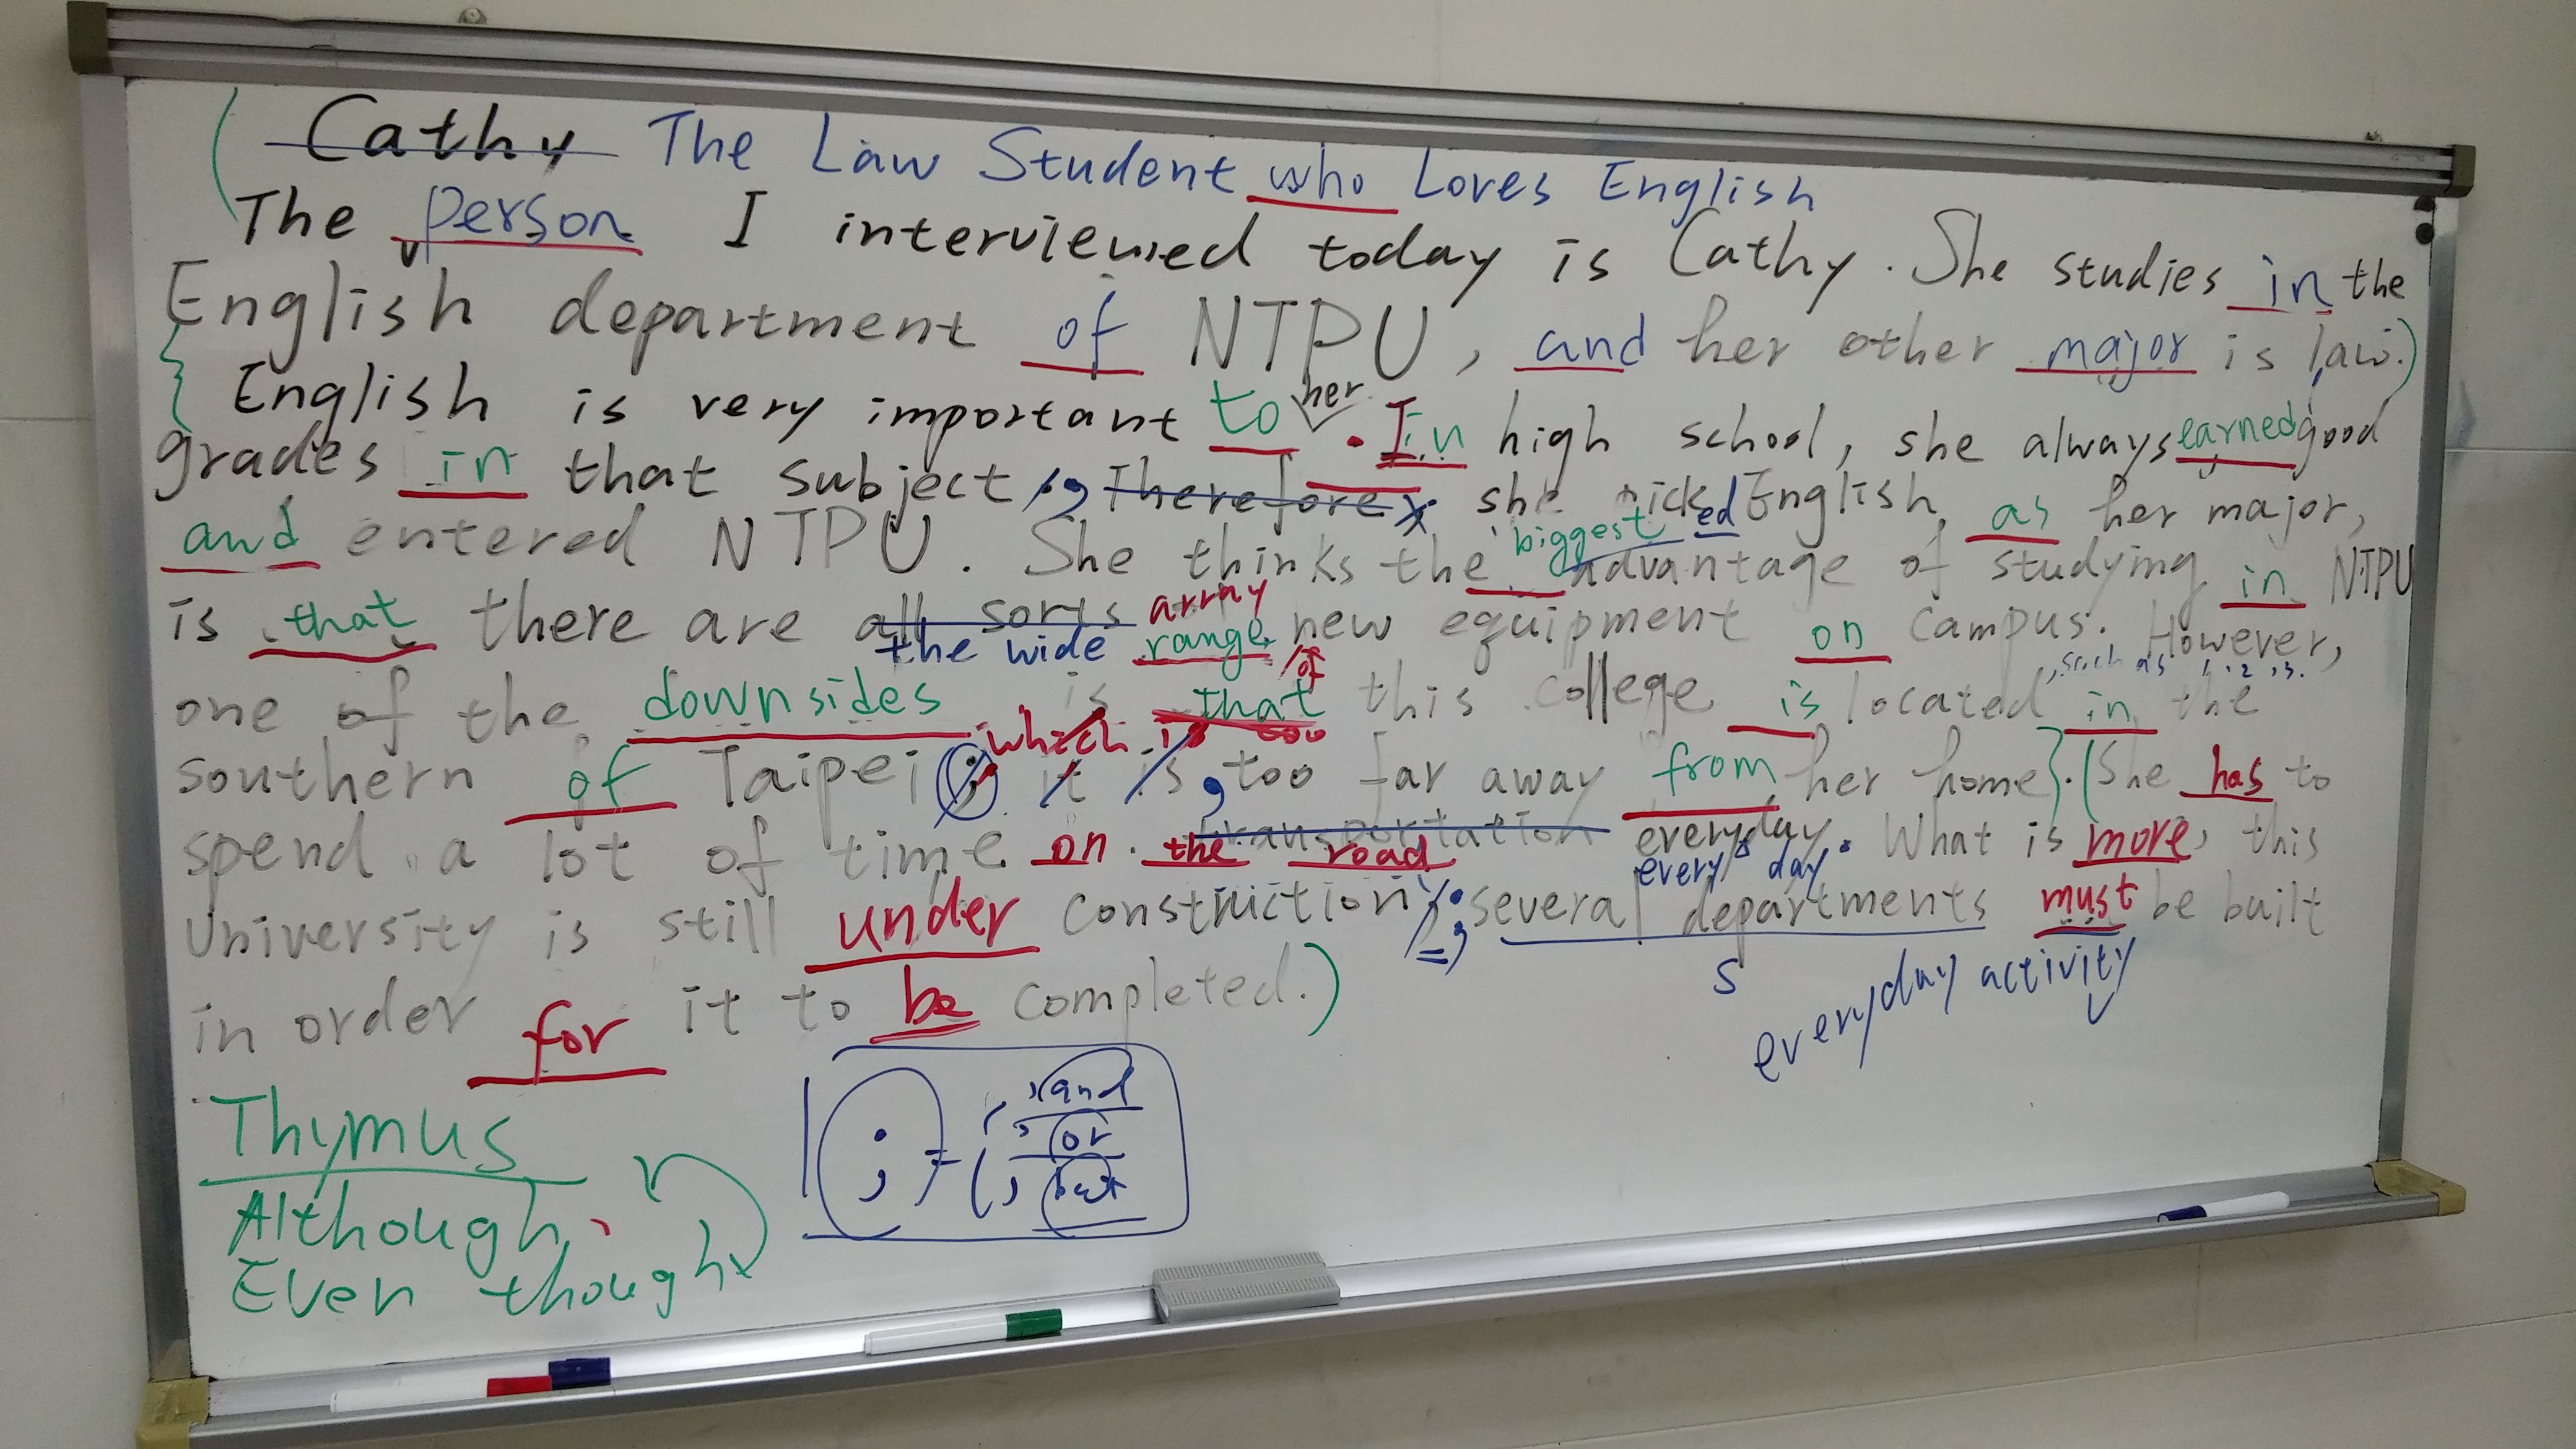 Cathy The Law Student who Loves English
The person I interviewed today is Cathy. She studies in the
English department of NTPU, and her other major is law.)
English is very important to her. In high school, she always earned good
grades in that subject, Therefore, she picked English as her major,
and entered NTPU. She thinks the biggest advantage of studying in NTPU
is that there are all sorts array new equipment on campus. However,
the wide range of
, such as 1, 2, 3.
one of the downsides is that this college is located in the
which is too
southern of Taipei; it is, too far away from her home}. (She has to
spend a lot of time on the road transportation everyday. What is more, this
every day
University is still under construction; several departments must be built
s
everyday activity
in order for it to be completed.)
Thymus
Although,
Even though
; = (, and
, or
, but